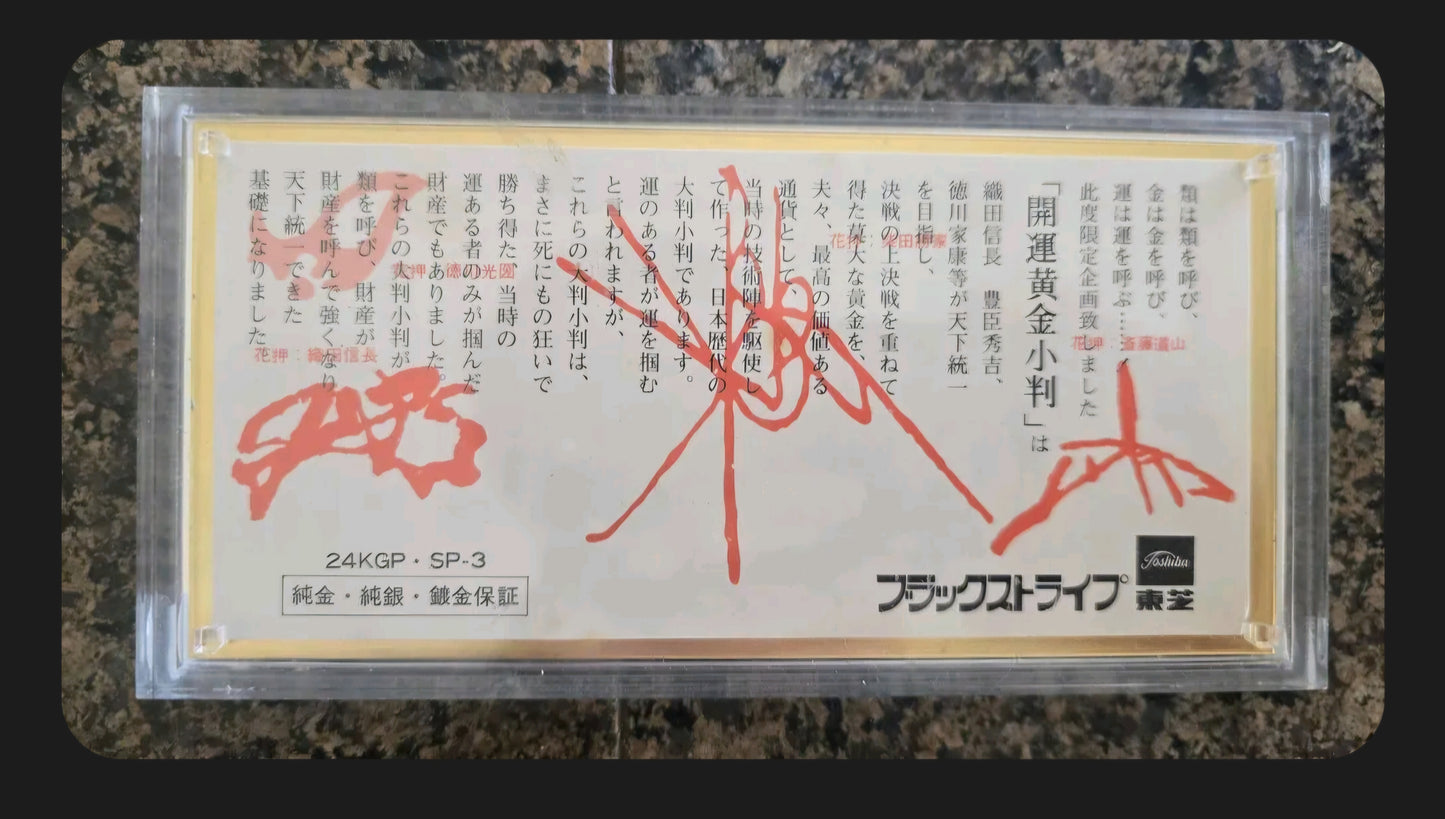 類は類を呼び、
金は金を呼び、
運は運を呼ぶ……！
此度限定企画致しました
「開運黄金小判」は
織田信長 豊臣秀吉、
徳川家康等が天下統一
を目指し、
決戦の上決戦を重ねて
得た莫大な黄金を、
夫々、最高の価値ある
通貨として、
当時の技術陣を駆使し
て作った、日本歴代の
大判小判であります。
運のある者が運を掴む
と言われますが、
これらの大判小判は、
まさに死にもの狂いで
勝ち得た、当時の
運ある者のみが掴んだ
財産でもありました。
これらの大判小判が
類を呼び、財産が
財産を呼んで強くなり
天下統一できた
基礎になりました。
花押：斎藤道山
花押：柴田勝家
花押：徳川光圀
花押：織田信長
24KGP・SP-3
純金・純銀・鍍金保証
ブラックストライプ
Toshiba
東芝